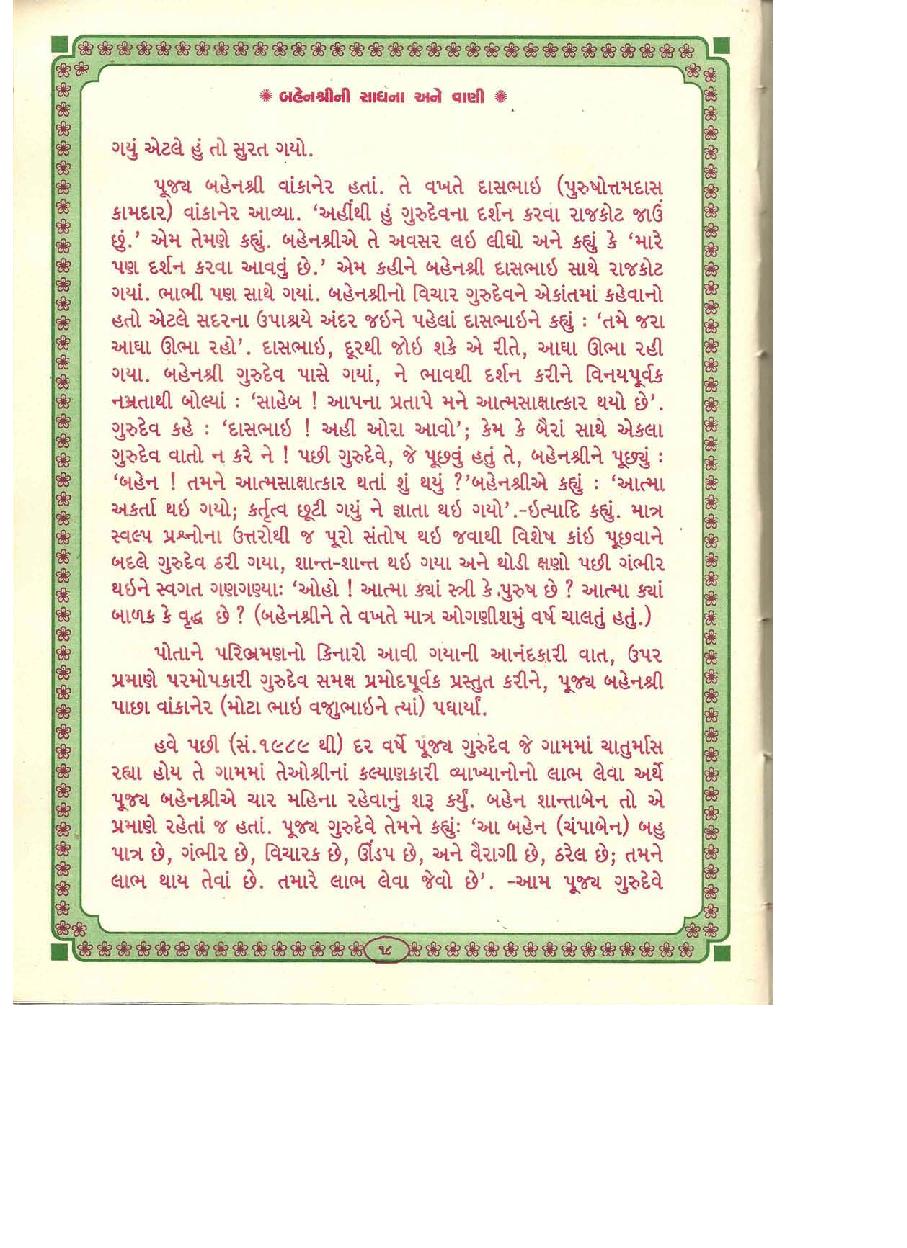 બહેનશ્રીની સાધના અને વાણી
ગયું એટલે હું તો સુરત ગયો.
પૂજ્ય બહેનશ્રી વાંકાનેર હતાં. તે વખતે દાસભાઇ (પુરુષોત્તમદાસ
કામદાર) વાંકાનેર આવ્યા. ‘અહીંથી હું ગુરુદેવના દર્શન કરવા રાજકોટ જાઉં
છું.’ એમ તેમણે કહ્યું. બહેનશ્રીએ તે અવસર લઇ લીધો અને કહ્યું કે ‘મારે
પણ દર્શન કરવા આવવું છે.’ એમ કહીને બહેનશ્રી દાસભાઇ સાથે રાજકોટ
ગયાં. ભાભી પણ સાથે ગયાં. બહેનશ્રીનો વિચાર ગુરુદેવને એકાંતમાં કહેવાનો
હતો એટલે સદરના ઉપાશ્રયે અંદર જઇને પહેલાં દાસભાઇને કહ્યું : ‘તમે જરા
આઘા ઊભા રહો’. દાસભાઇ, દૂરથી જોઇ શકે એ રીતે, આઘા ઊભા રહી
ગયા. બહેનશ્રી ગુરુદેવ પાસે ગયાં, ને ભાવથી દર્શન કરીને વિનયપૂર્વક
નમ્રતાથી બોલ્યાં : ‘સાહેબ ! આપના પ્રતાપે મને આત્મસાક્ષાત્કાર થયો છે’.
ગુરુદેવ કહે : ‘દાસભાઇ ! અહીં ઓરા આવો’; કેમ કે બૈરાં સાથે એકલા
ગુરુદેવ વાતો ન કરે ને ! પછી ગુરુદેવે, જે પૂછવું હતું તે, બહેનશ્રીને પૂછ્યું :
‘બહેન ! તમને આત્મસાક્ષાત્કાર થતાં શું થયું ?’બહેનશ્રીએ કહ્યું : ‘આત્મા
અકર્તા થઇ ગયો; કર્તૃત્વ છૂટી ગયું ને જ્ઞાતા થઇ ગયો’.-ઇત્યાદિ કહ્યું. માત્ર
સ્વલ્પ પ્રશ્નોના ઉત્તરોથી જ પૂરો સંતોષ થઇ જવાથી વિશેષ કાંઇ પૂછવાને
બદલે ગુરુદેવ ઠરી ગયા, શાન્ત-શાન્ત થઇ ગયા અને થોડી ક્ષણો પછી ગંભીર
થઇને સ્વગત ગણગણ્યાઃ ‘ઓહો ! આત્મા ક્યાં સ્ત્રી કે પુરુષ છે ? આત્મા ક્યાં
બાળક કે વૃદ્ધ છે ? (બહેનશ્રીને તે વખતે માત્ર ઓગણીશમું વર્ષ ચાલતું હતું.)
પોતાને પરિભ્રમણનો કિનારો આવી ગયાની આનંદકારી વાત, ઉપર
પ્રમાણે પરમોપકારી ગુરુદેવ સમક્ષ પ્રમોદપૂર્વક પ્રસ્તુત કરીને, પૂજ્ય બહેનશ્રી
પાછા વાંકાનેર (મોટા ભાઇ વજુભાઇને ત્યાં) પધાર્યાં.
હવે પછી (સં.૧૯૮૯ થી) દર વર્ષે પૂજ્ય ગુરુદેવ જે ગામમાં ચાતુર્માસ
રહ્યા હોય તે ગામમાં તેઓશ્રીનાં કલ્યાણકારી વ્યાખ્યાનોનો લાભ લેવા અર્થે
પૂજ્ય બહેનશ્રીએ ચાર મહિના રહેવાનું શરૂ કર્યું. બહેન શાન્તાબેન તો એ
પ્રમાણે રહેતાં જ હતાં. પૂજ્ય ગુરુદેવે તેમને કહ્યુંઃ ‘આ બહેન (ચંપાબેન) બહુ
પાત્ર છે, ગંભીર છે, વિચારક છે, ઊંડપ છે, અને વૈરાગી છે, ઠરેલ છે; તમને
લાભ થાય તેવાં છે. તમારે લાભ લેવા જેવો છે’. -આમ પૂજ્ય ગુરુદેવે
૧૮